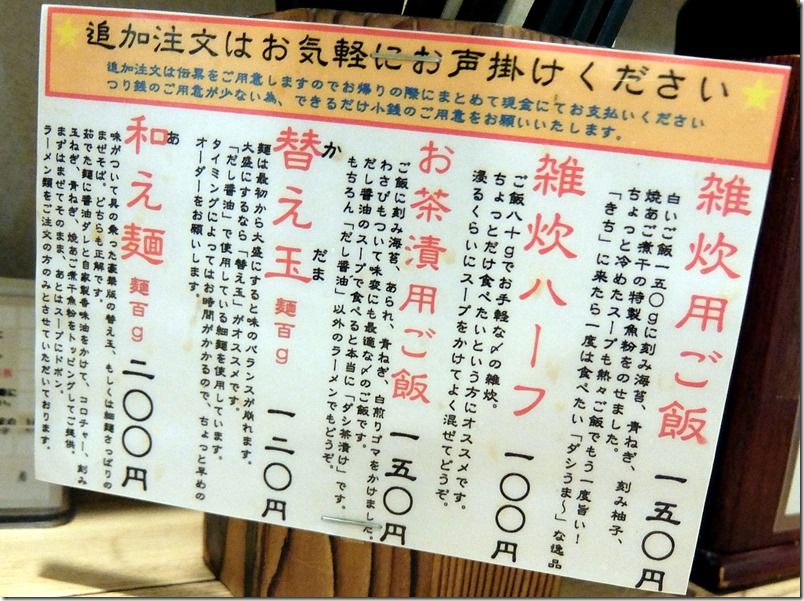 追加注文はお気軽にお声掛けください
追加注文は伝票をご用意しますのでお帰りの際にまとめて現金にてお支払いください
つり銭のご用意が少ない為、できるだけ小銭のご用意をお願いいたします。
雑炊用ご飯 一五〇円
白いご飯一五〇gに刻み海苔、青ねぎ、刻み柚子、
焼あご煮干の特製魚粉をのせました。
ちょっと冷めたスープも熱々ご飯でもう一度旨い!
「きち」に来たら一度は食べたい「ダシうま〜」な逸品
雑炊ハーフ 一〇〇円
ご飯八十gでお手軽な〆の雑炊。
ちょっとだけ食べたいという方にオススメです。
浸るくらいにスープをかけてよく混ぜてどうぞ。
お茶漬用ご飯 一五〇円
ご飯に刻み海苔、あられ、青ねぎ、白煎りゴマをかけました。
わさびもついて味変にも最適な〆のご飯です。
だし醤油のスープで食べると本当に「ダシ茶漬け」です。
もちろん「だし醤油」以外のラーメンでもどうぞ。
替え玉 麺百g 一二〇円
か だま
麺は最初から大盛にすると味のバランスが崩れます。
大盛にするなら「替え玉」がオススメです。
「だし醤油」で使用している細麺を使用しています。
タイミングによってはお時間がかかるので、ちょっと早めの
オーダーをお願いします。
和え麺 麺百g 二〇〇円
あ
味がついて具の乗った豪華版の替え玉、もしくは細麺さっぱりの
まぜそば。どちらも正解です。
茹でた麺に醤油ダレと自家製香味油をかけて、コロチャー、刻み
玉ねぎ、青ねぎ、焼あご煮干魚粉をトッピングしてご提供。
まずはまぜてそのまま、あとはスープにドボン。
ラーメン類をご注文の方のみとさせていただいております。